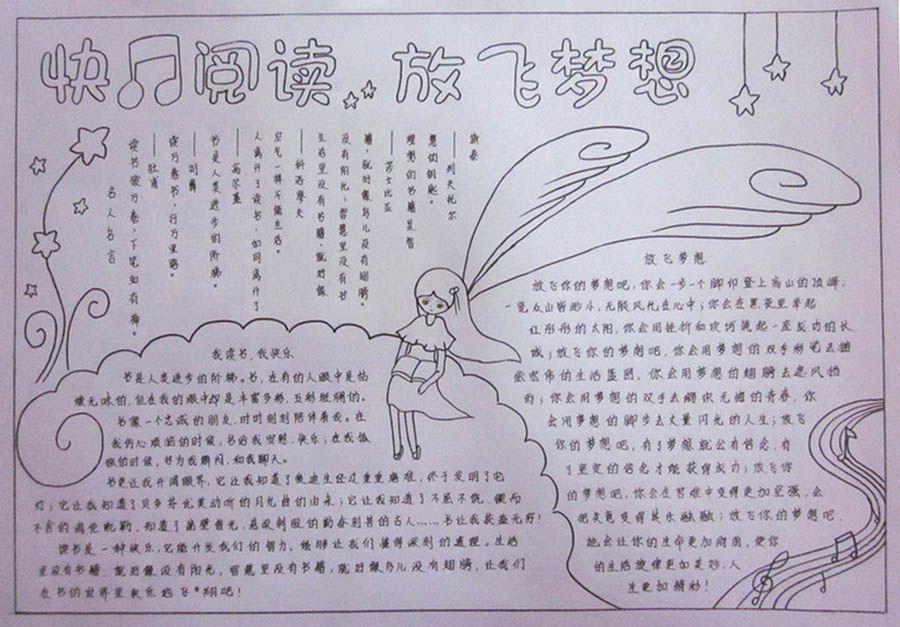 快阅读 放飞梦想
名人名言
读书破万卷,下笔如有神。
——杜甫
读万卷书,行万里路。
——刘彝
书是人类进步的阶梯。
——高尔基
人离开了读书,如同离开了
空气一样不能生活。
——科洛廖夫
生活里没有书籍,就好像
没有阳光;智慧里没有书
籍,就好像鸟儿没有翅膀。
——莎士比亚
理想的书籍是智
慧的钥匙。
——列夫托尔
斯泰
我读书,我快乐
书是人类进步的阶梯。书,在有的人眼中是枯
燥无味的,但在我的眼中却是丰富多彩,五彩斑斓的。
书像一个忠诚的朋友,时时刻刻陪伴着我。在
我伤心烦恼的时候,书给我安慰,快乐;在我孤
独的时候,书为我解闷,和我聊天。
书更让我开阔眼界,它让我知道了奥迪生经过重重磨难,终于发明了电
灯;它让我知道了贝多芬优美动听的月光曲的由来;它让我知道了不屈不挠,锲而
不舍的海伦凯勒,知道了凿壁偷光,悬梁刺股的勤奋刻苦的古人……书让我获益无穷!
读书是一种快乐,它能开发我们的智力,能够让我们懂得深刻的道理。生活
里没有书籍,就好像没有阳光,智慧里没有书籍,就好像鸟儿没有翅膀,让我们
在书的世界里快乐地飞*翔吧!
放飞梦想
放飞你的梦想吧,你会一步一个脚印登上高山的顶峰,
一览众山皆渺小,无限风光在心中;你会在黑夜里举起
红彤彤的太阳,你会用挫折和坎坷浇起一座成功的长
城;放飞你的梦想吧,你会用梦想的双手彩笔去描
绘宏伟的生活蓝图,你会用梦想的翅膀去迎风挡
雨;你会用梦想的双手去解读无悔的青春,你
会用梦想的脚步去丈量闪光的人生;放飞
你的梦想吧,有了梦想就会有信念,有
了坚定的信念才能获得成功;放飞你
的梦想吧,你会在苦难中变得更加坚强,会
把灰色变得其乐融融;放飞你的梦想吧,
她会让你的生命更加绚丽,使你
的生活旋律更加美妙,人
生更加精彩!